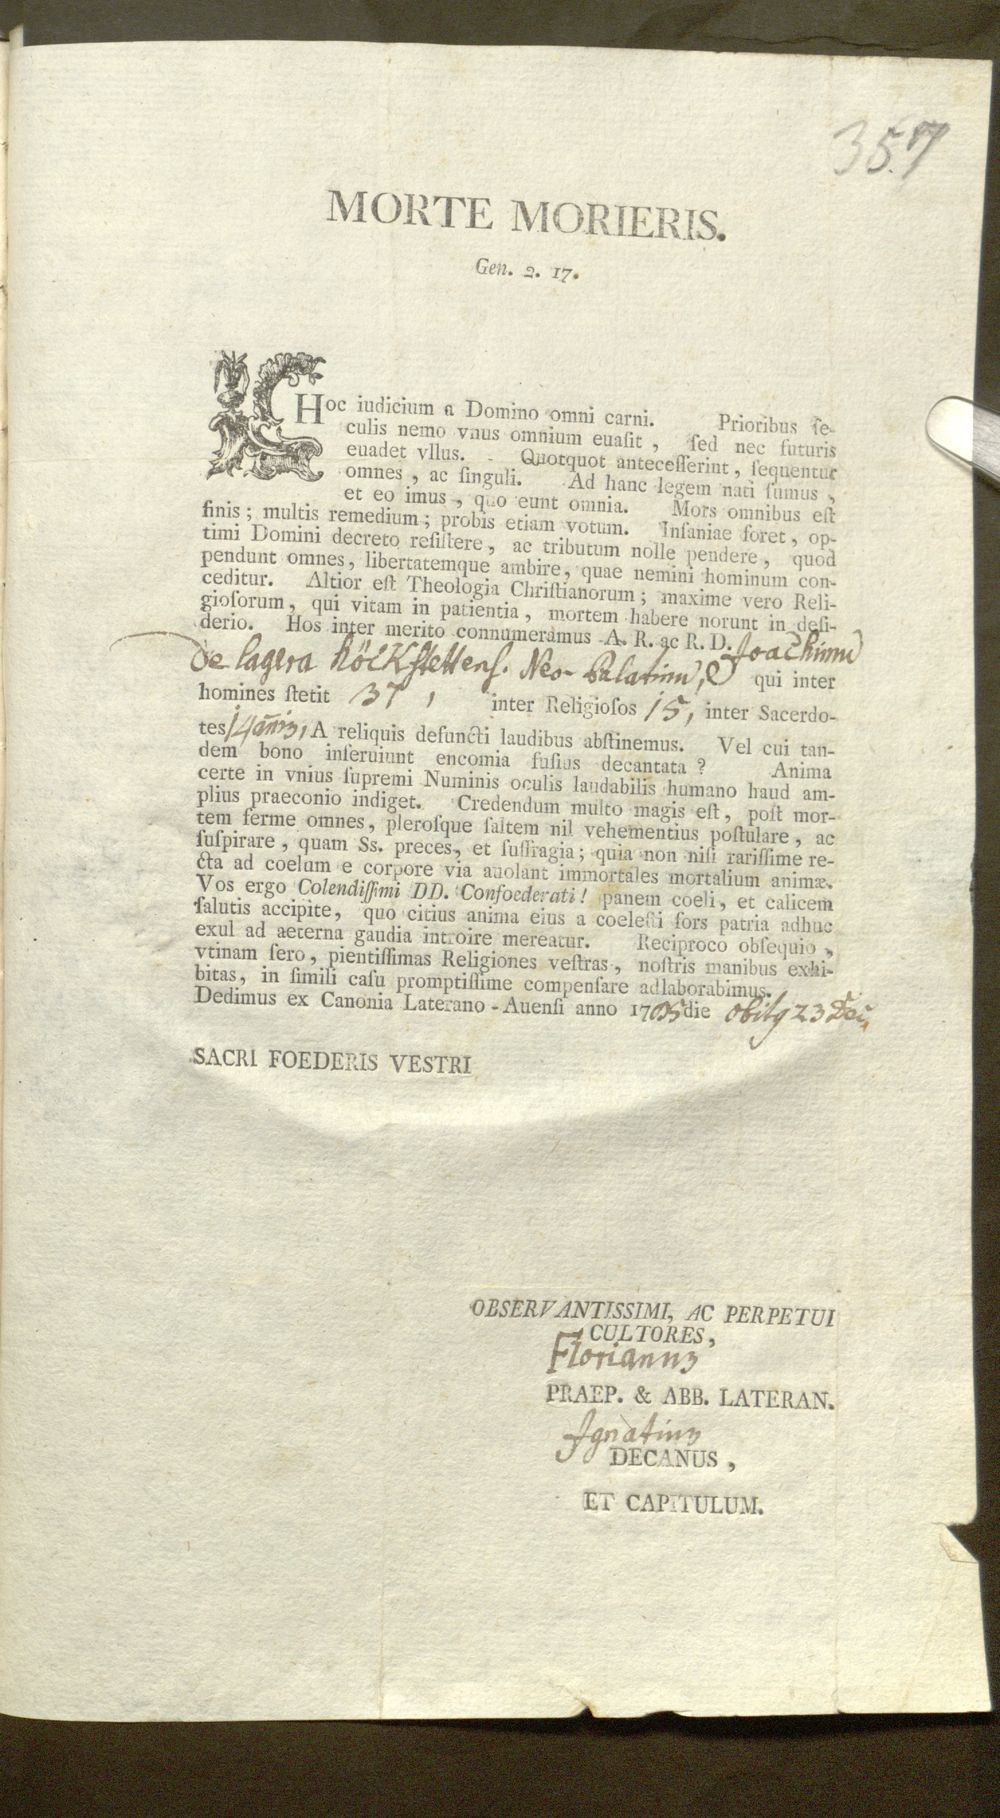 357
MORTE MORIERIS.
Gen. 2. 17.
Hoc iudicium a Domino omni carni. Prioribus ſe-
culis nemo vnus omnium euaſit, ſed nec futuris
euadet vllus. Quotquot anteceſſerint, ſequentur
omnes, ac ſinguli. Ad hanc legem nati ſumus,
et eo imus, quo eunt omnia. Mors omnibus eſt
finis; multis remedium; probis etiam votum. Inſaniae foret, op-
timi Domini decreto reſiſtere, ac tributum nolle pendere, quod
pendunt omnes, libertatemque ambire, quae nemini hominum con-
ceditur. Altior eſt Theologia Chriſtianorum; maxime vero Reli-
gioſorum, qui vitam in patientia, mortem habere norunt in deſi-
derio. Hos inter merito connumeramus A. R. ac R. D. Joachimū
De lagera höckſtettenſ. Neo-Palatinū, qui inter
homines ſtetit 37, inter Religioſos 15, inter Sacerdo-
tes 14 A reliquis defuncti laudibus abſtinemus. Vel cui tan-
dem bono inſeruiunt encomia fuſius decantata? Anima
certe in vnius ſupremi Numinis oculis laudabilis humano haud am-
plius praeconio indiget. Credendum multo magis eſt, poſt mor-
tem ferme omnes, pleroſque ſaltem nil vehementius poſtulare, ac
ſuſpirare, quam Ss. preces, et ſuffragia; quia non niſi rariſſime re-
cta ad coelum e corpore via auolant immortales mortalium animæ.
Vos ergo Colendiſſimi DD. Confoederati! panem coeli, et calicem
ſalutis accipite, quo citius anima eius a coeleſti ſors patria adhuc
exul ad aeterna gaudia introire mereatur. Reciproco obſequio,
vtinam ſero, pientiſſimas Religiones veſtras, noſtris manibus exhi-
bitas, in ſimili caſu promptiſſime compenſare adlaborabimus.
Dedimus ex Canonia Laterano-Auenſi anno 17 die 23 Dec
SACRI FOEDERIS VESTRI
OBSERVANTISSIMI, AC PERPETUI
CULTORES,
Florianus
PRAEP. & ABB. LATERAN.
Ignatius
DECANUS,
ET CAPITULUM.